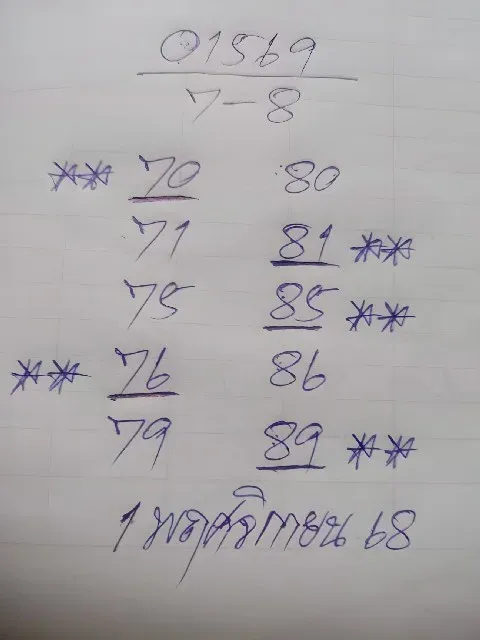 01569
7-8
** 70 80
71 81 **
75 85 **
** 76 86
79 89 **
1 พฤศจิกายน 68